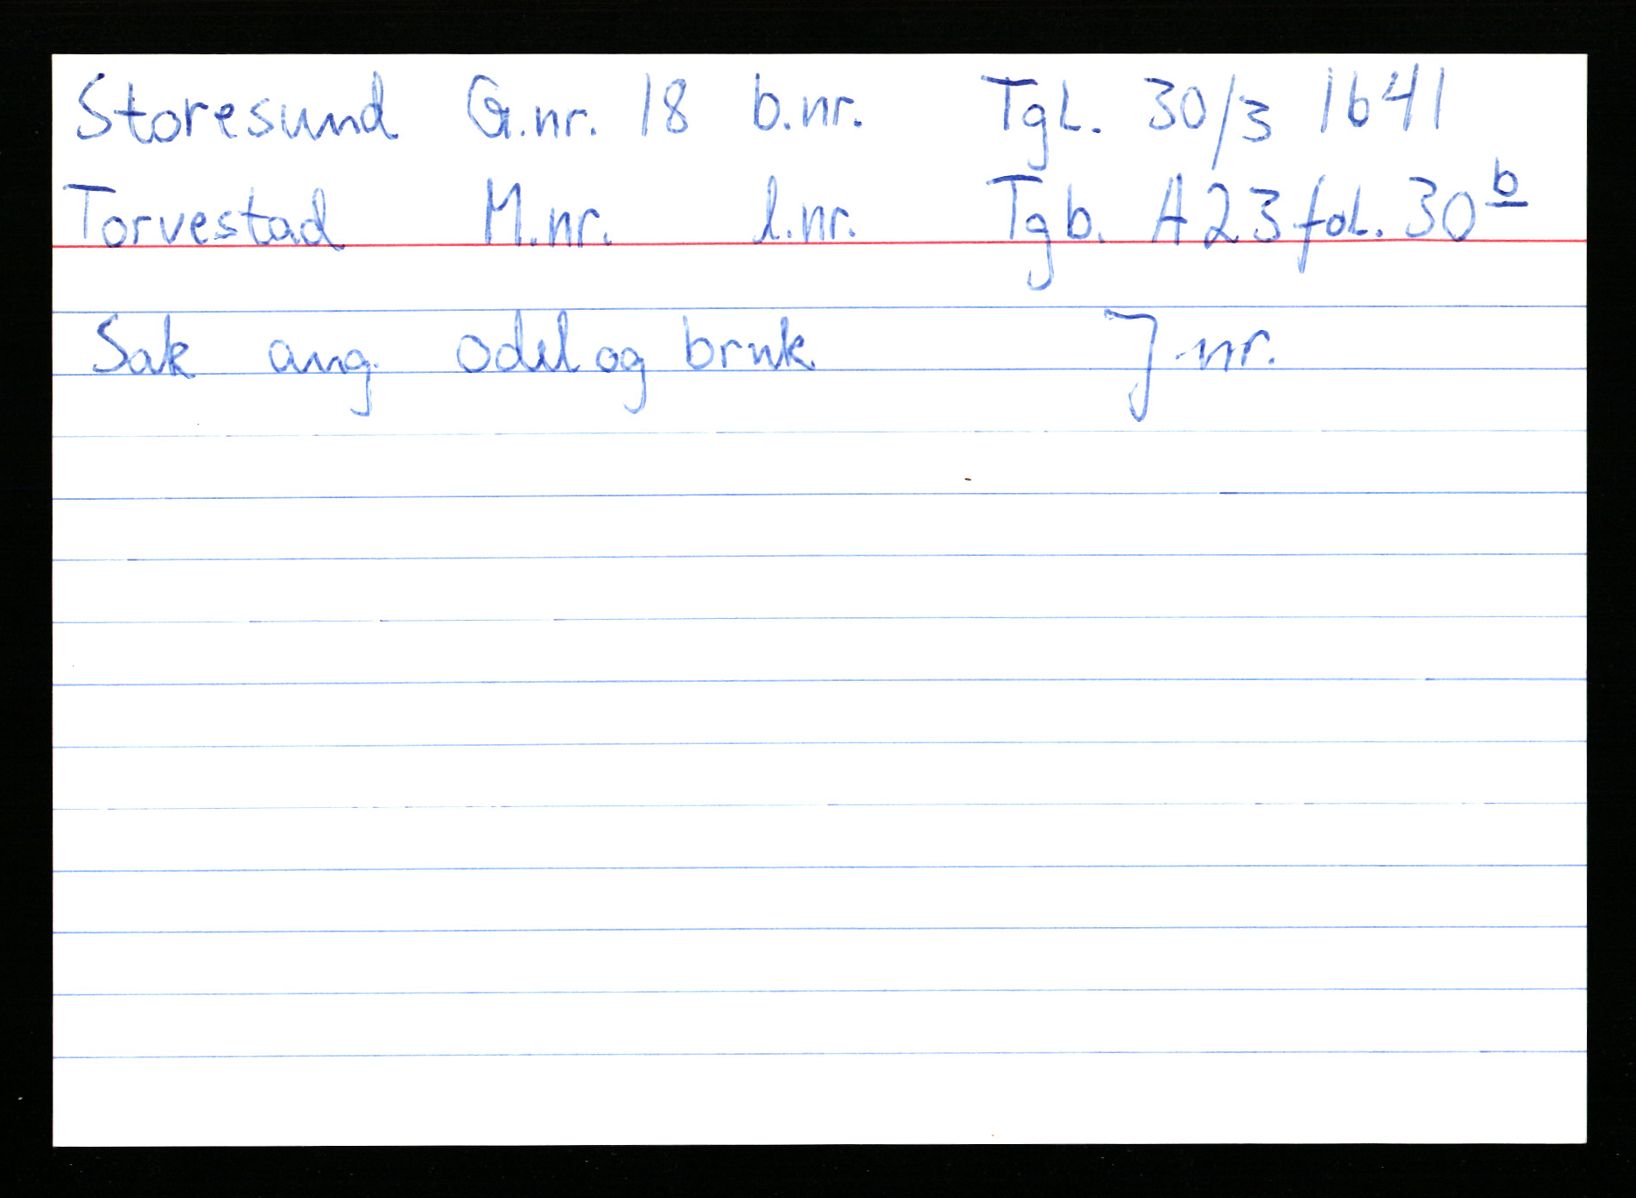 Storesund G.nr. 18 b.nr. Tgl. 30/3 1641
Torvestad M.nr. l.nr. Tgb. A23 fol. 30b
Sak ang. odel og bruk. J nr.